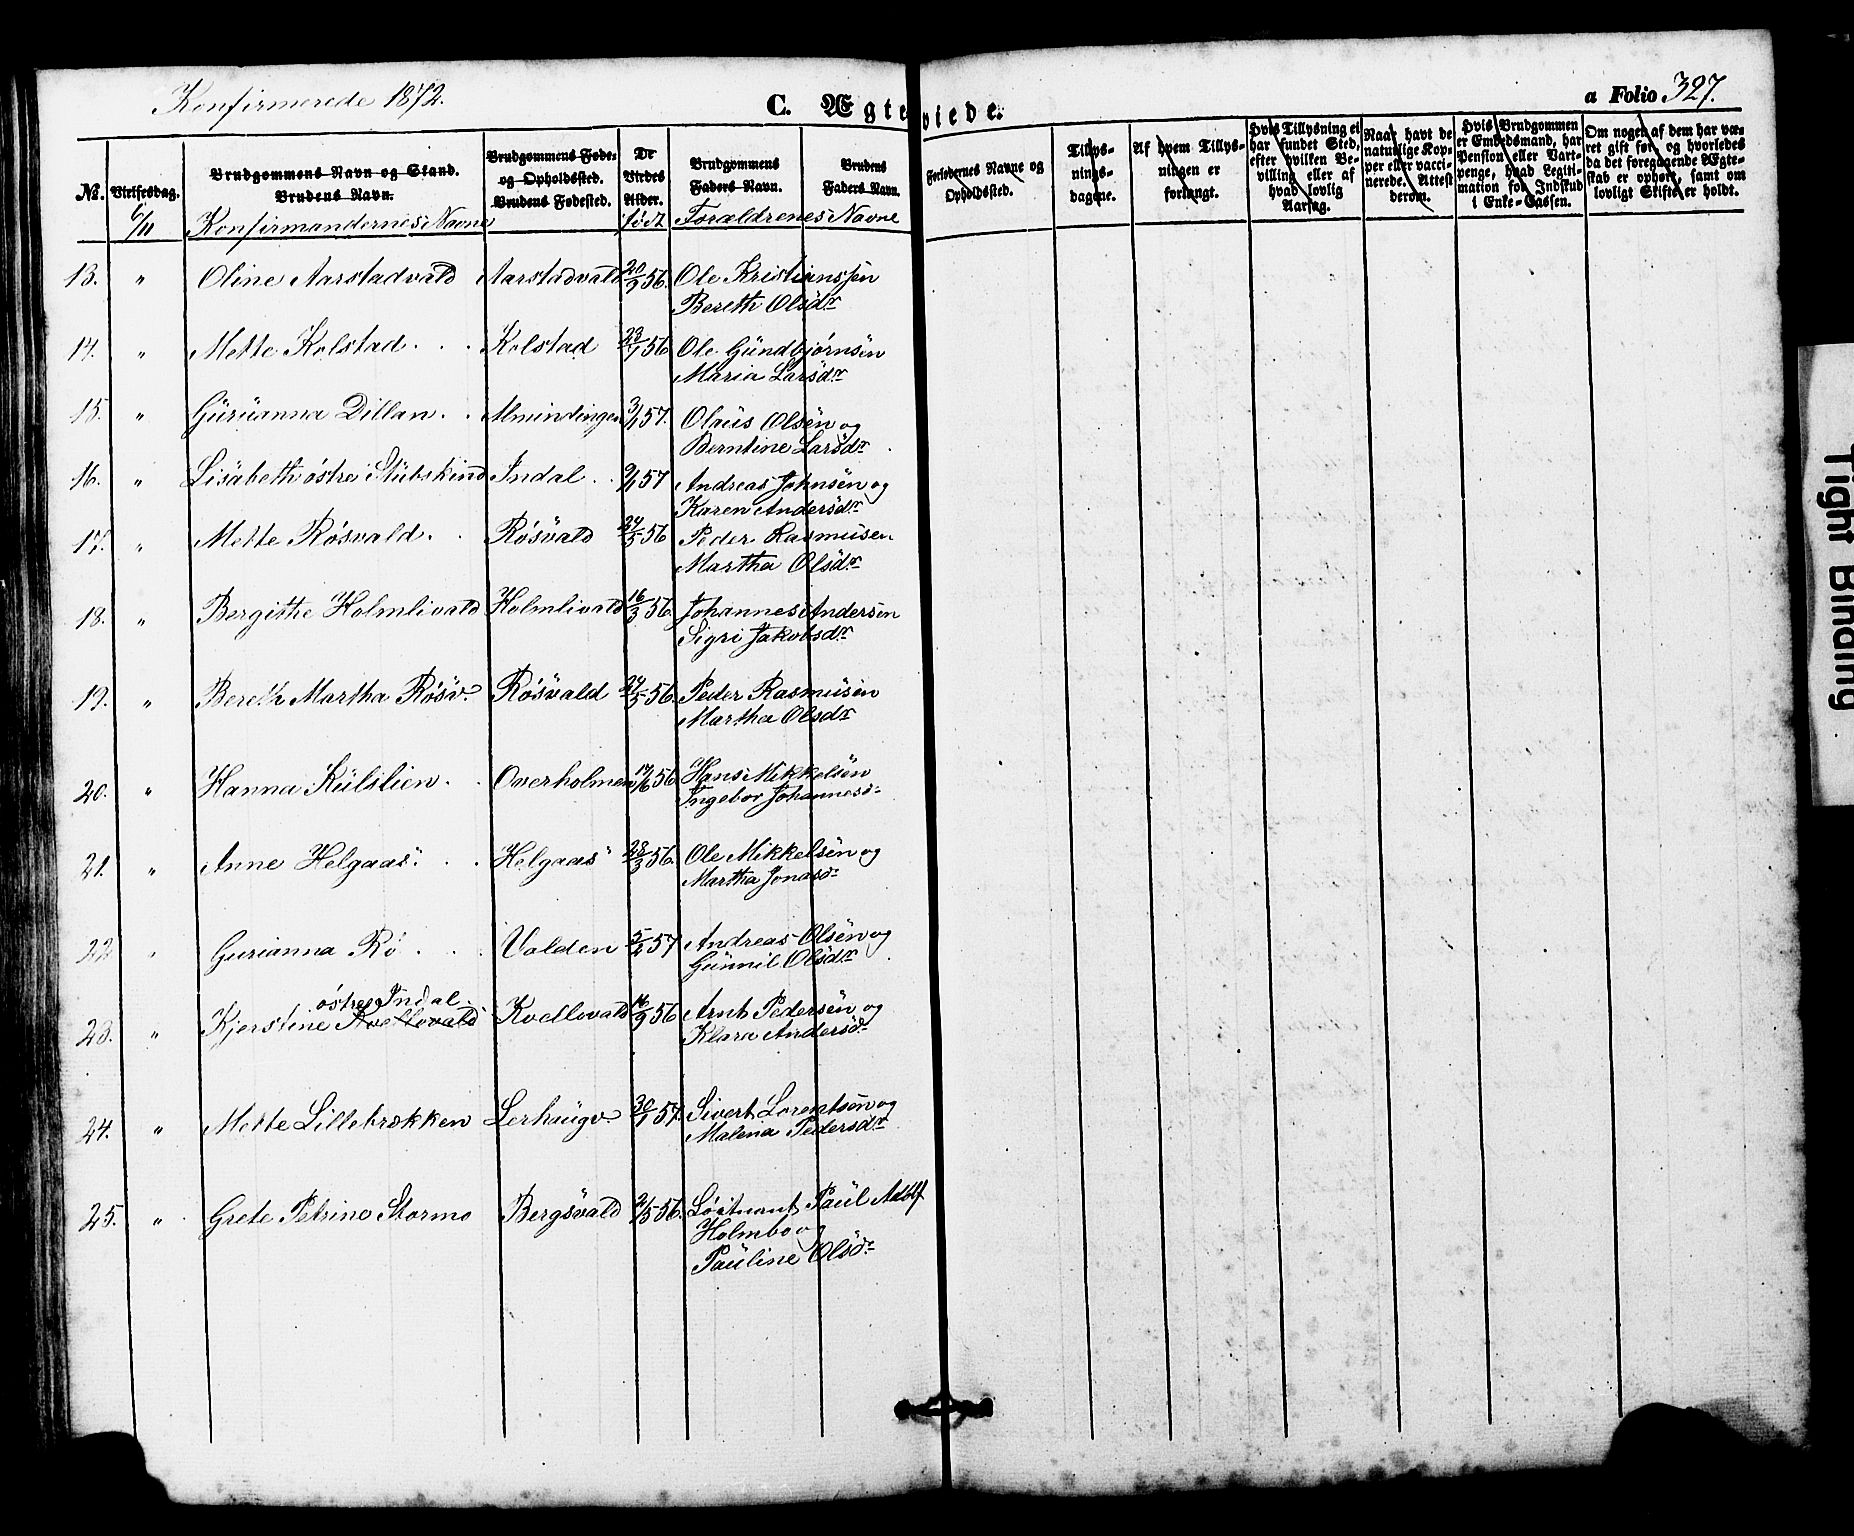 Konfirmerede 1872.
C. Ægteviede.
a Folio 327.
No.
Vielsesdag.
6/11
Brudgommens Navn og Stand.
Brudens Navn.
Konfirmandernes Navne
Brudgommens Føde-
og Opholdssted.
Brudens Fødested.
De
Viedes
Alder.
født
Brudgommens
Faders Navn.
Brudens
Faders Navn.
Forældrenes Navne
Forlovernes Navne og
Opholdssted.
Tillys-
nings-
dagene.
Af hvem Tillys-
ningen er
forlangt.
Hvis Tillysning ei
har fundet Sted,
efter hvilken Be-
villing eller af
hvad lovlig
Aarsag.
Naar havt de
naturlige Kop-
per eller vacci-
nerede. Attest
derom.
Hvis Brudgommen
er Embedsmand, har
Pension eller Vart-
penge, hvad Legiti-
mation for Indskud
i Enke-Cassen.
Om nogen af dem har væ-
ret gift før, og hvorledes
da det foregagende Ægte-
skab er ophørt, samt om
lovligt Skifte er holdt.
13. " Oline Aarstadvald Aarstadvald 20/9 56. Ole Kristiansen
Bereth Olsdr
14. " Mette Kolstad . . . Kolstad 23/1 56 Ole Gundbjørnsen
Maria Larsdr
15. " Gurianna Dillan . . Almindingen 3/1 57. Olaus Olsen og
Berntine Larsdr
16. " Lisabeth østre Stubskind Indal . . 9/1 57 Andreas Johnsen og
Karen Andersdr
17. " Mette Røsvald. . Røsvald 24/5 56 Peder Rasmusen
Martha Olsdr
18. " Bergithe Holmlivald Holmlivald 16/3 56. Johannes Andersen
Sigri Jakobsdr
19. " Bereth Martha Røsv. Røsvald 24/5 56. Peder Rasmusen
Martha Olsdr
20. " Hanna Kulslien . . Overholmen 17/6 56 Hans Mikkelsen
Ingebor Johannesd.
21. " Anne Helgaas . . . Helgaas 28/3 56. Ole Mikkelsen og
Martha Jonasd.
22 " Gurianna Rø . . . Valden 5/2 57 Andreas Olsen og
Gunnil Olsdr
østre Indal.
23. " Kjerstine Kvellovald Kvellovald 16/9 56 Arnt Pedersen og
Klara Andersd.
24. " Mette Lillebrækken Lerhaugv. 30/1 57. Sivert Lorentsen og
Malena Pedersdr
25. " Grete Petrine Stormo Bergsvald 2/5 56. Løitnant Paul Adolf
Holmbo og
Pauline Olsd.
Tight Binding